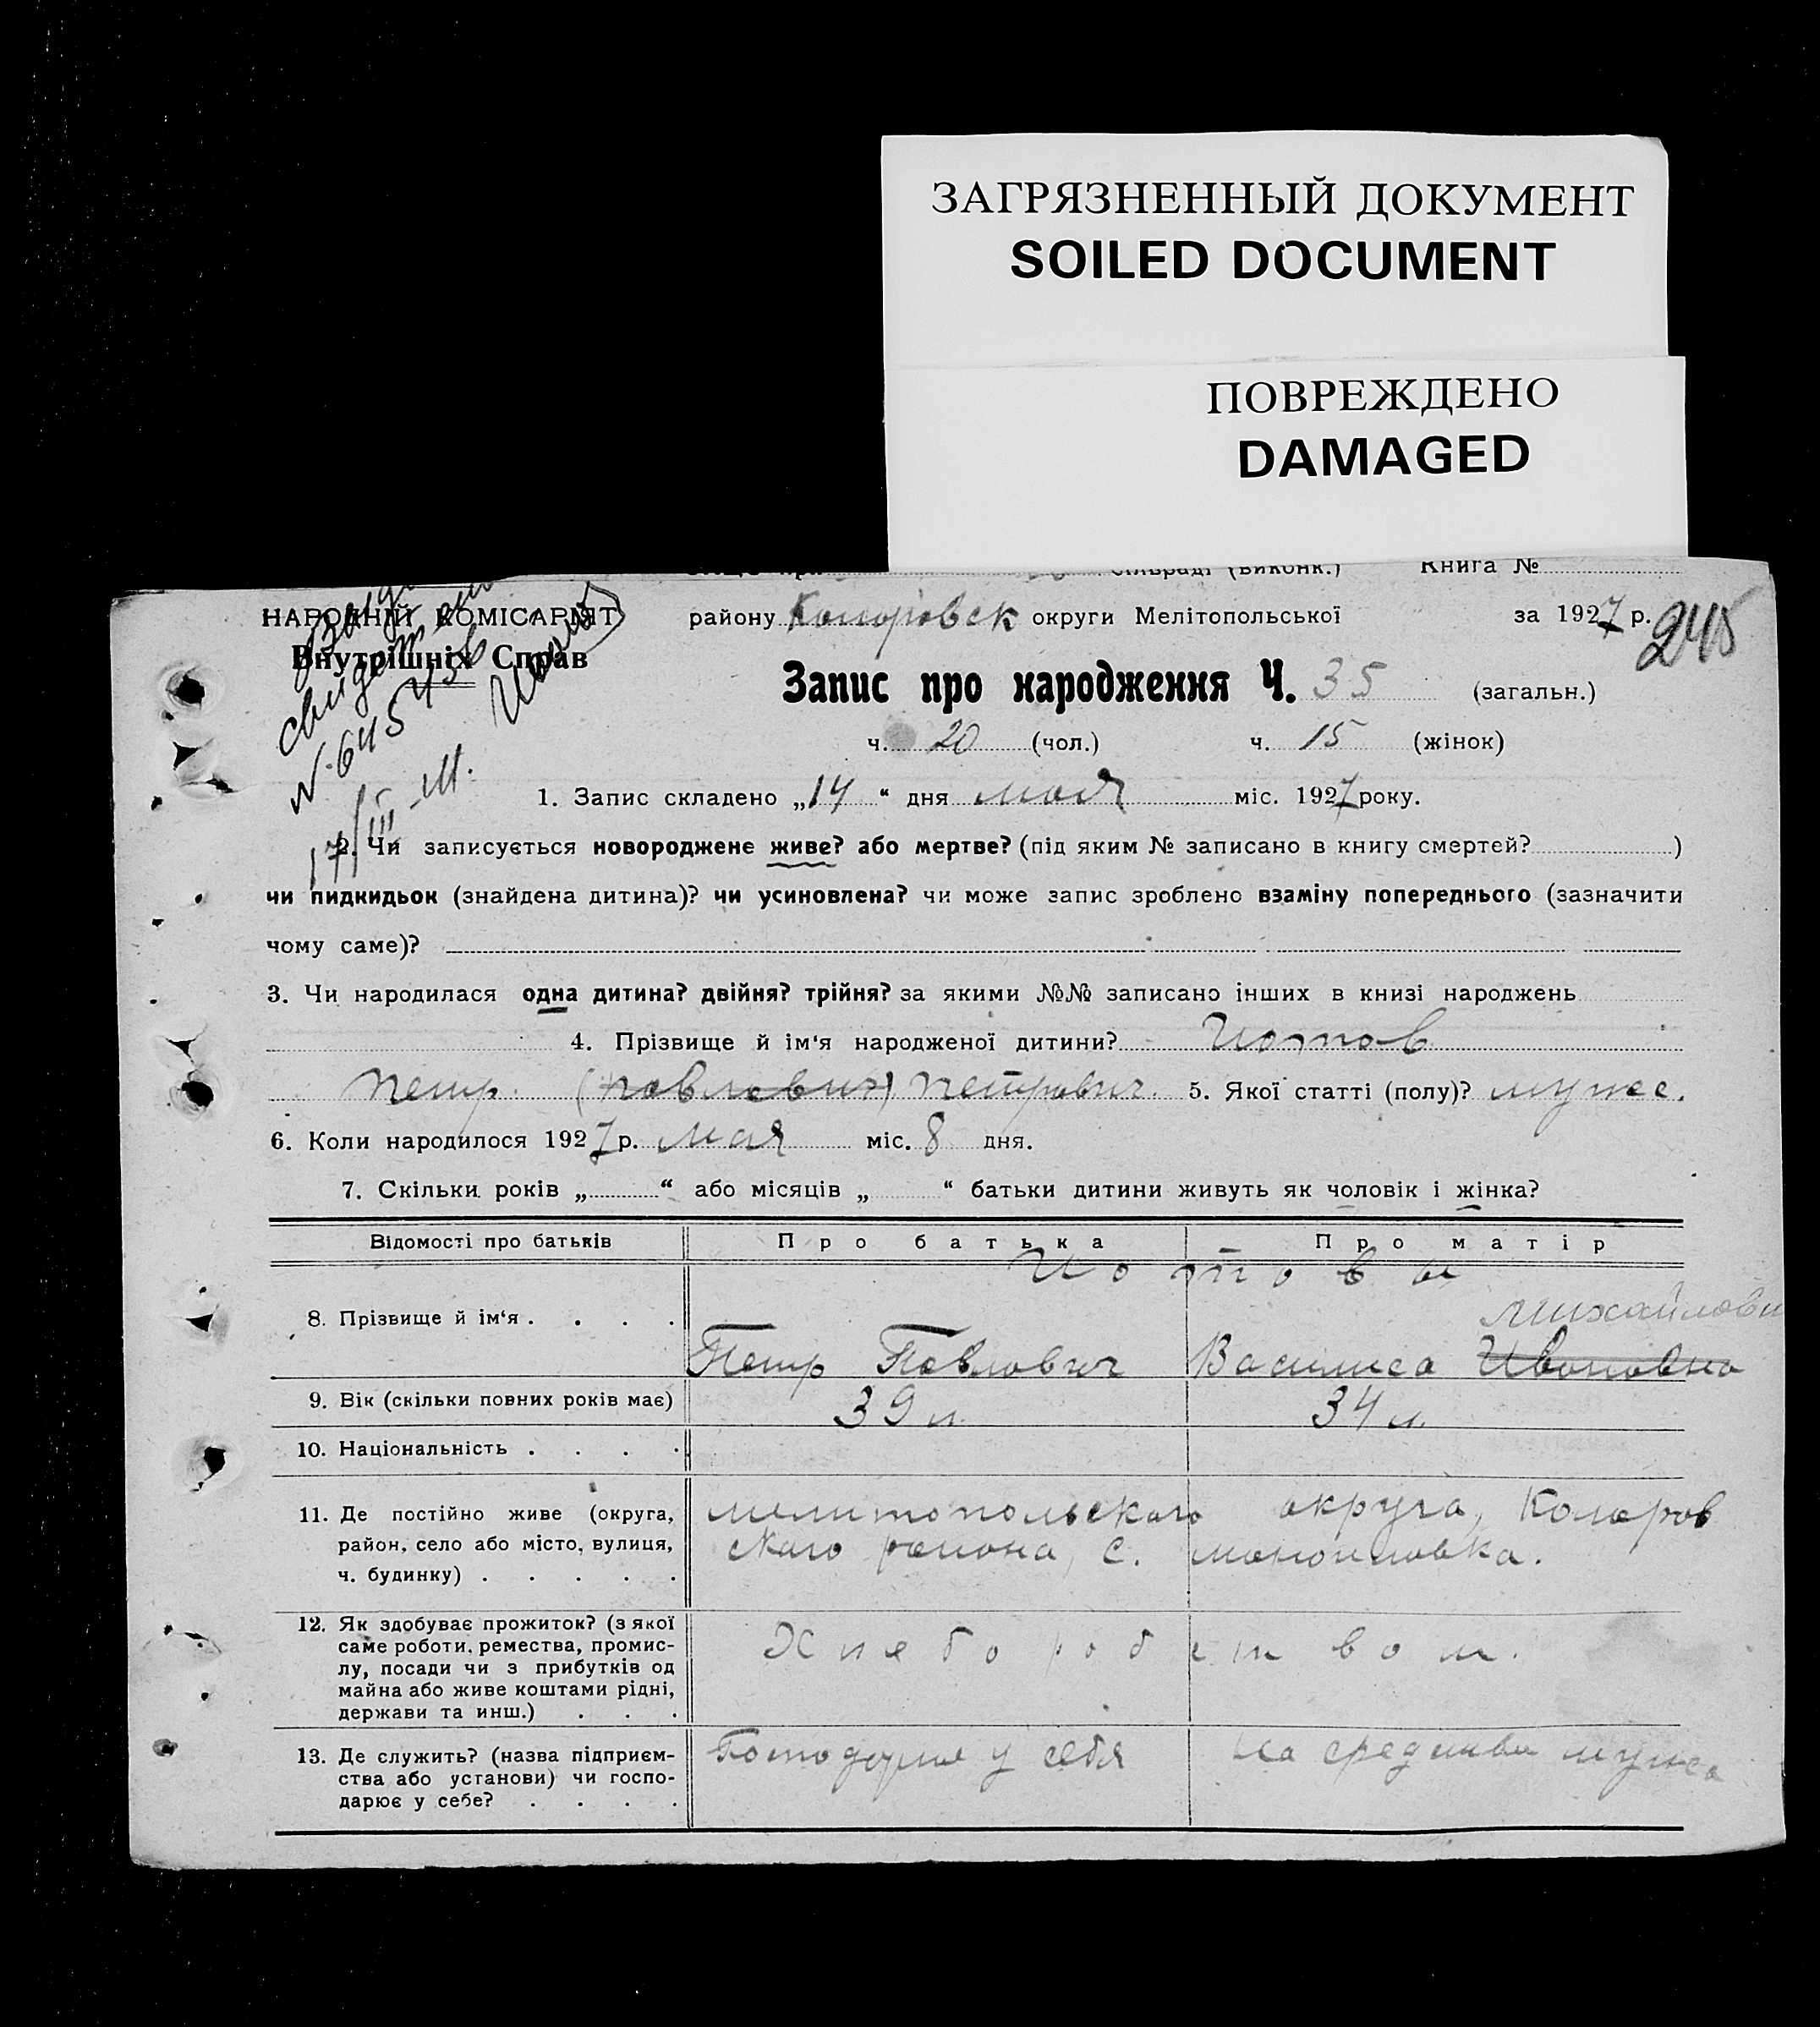 ЗАГРЯЗНЕННЫЙ ДОКУМЕНТ
SOILED DOCUMENT
ПОВРЕЖДЕНО
DAMAGED
сільраді (виконк.) Книга №
НАРОДНІЙ КОМІСАРІЯТ
Внутрішніх Справ
району округи Мелітопольської за 1927 р.
245
№ 645456
17/III-
Запис про народження Ч. 35 (загальн.)
ч. 20 (чол.) ч. 15 (жінок)
1. Запис складено „14“ дня мая міс. 1927 року.
2. Чи записується новороджене живе? або мертве? (під яким № записано в книгу смертей? )
чи пидкидьок (знайдена дитина)? чи усиновлена? чи може запис зроблено взаміну попереднього (зазначити
чому саме)?
3. Чи народилася одна дитина? двійня? трійня? за якими №№ записано інших в книзі народжень
4. Прізвище й ім'я народженої дитини? Иотов
Петр (Павлович) Петрович. 5. Якої статті (полу)? муже.
6. Коли народилося 1927 р. мая міс. 8 дня.
7. Скільки років „ “ або місяців „ “ батьки дитини живуть як чоловік і жінка?
Відомості про батьків Про батька Про матір
Иотовы
8. Прізвище й ім'я . . . . Петр Павлович Василиса Ивановна
Михайлови
9. Вік (скільки повних років має) 39 л. 34 л.
10. Національність . . . .
11. Де постійно живе (округа, район, село або місто, вулиця, ч. будинку) . . . . .
мелитопольскаго округа, Коларов
скаго района, с. маноиловка.
12. Як здобуває прожиток? (з якої саме роботи, ремества, промис-
лу, посади чи з прибутків од
майна або живе коштами рідні,
держави та инш.) . . .
Хлеборобством.
13. Де служить? (назва підприєм-
ства або установи) чи госпо-
дарює у себе? . . . .
у себя на средства мужа